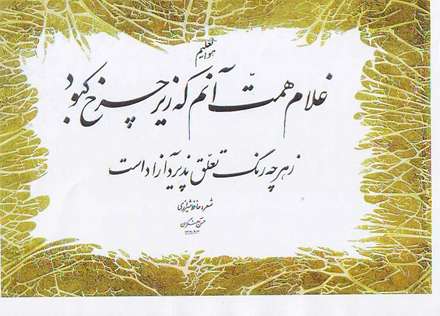 هوالعلیم
غلام همّت آنم که زیر چرخ کبود
ز هر چه رنگ تعلّق پذیرد آزاد است
شعر: حافظ شیرازی